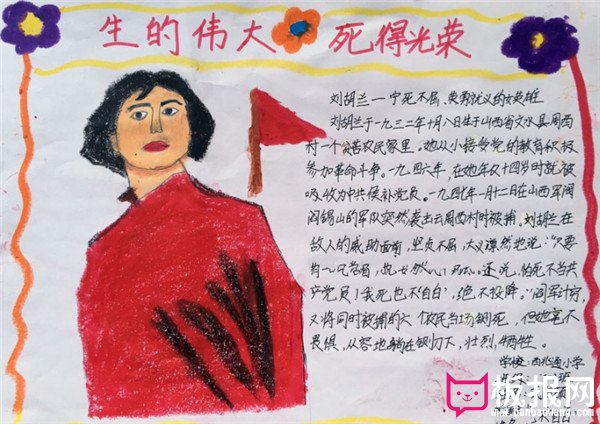 生的伟大 死得光荣
刘胡兰一宁死不屈、英勇就义的女英雄
刘胡兰于一九三二年十月八日生于山西省文水县周西
村一个贫苦农民家里。她从小接受党的教育积极
参加革命斗争。一九四六年,在她年仅十四岁时就被
吸收为中共候补党员。一九四七年一月十二日在山西军阀
阎锡山的军队突然袭击云周西村时被捕。刘胡兰在
敌人的威胁面前,坚贞不屈,大义凛然地说:“只要
还说,怕死不当共
产党员!我死也不自白,绝不投降。”阎军计穷,
又将同时被捕的六位农民当场铡死,但她毫不
畏惧,从容地躺在铡刀下,壮烈牺牲。
学校:西兆通小学
板报网
www.banbaowang.com